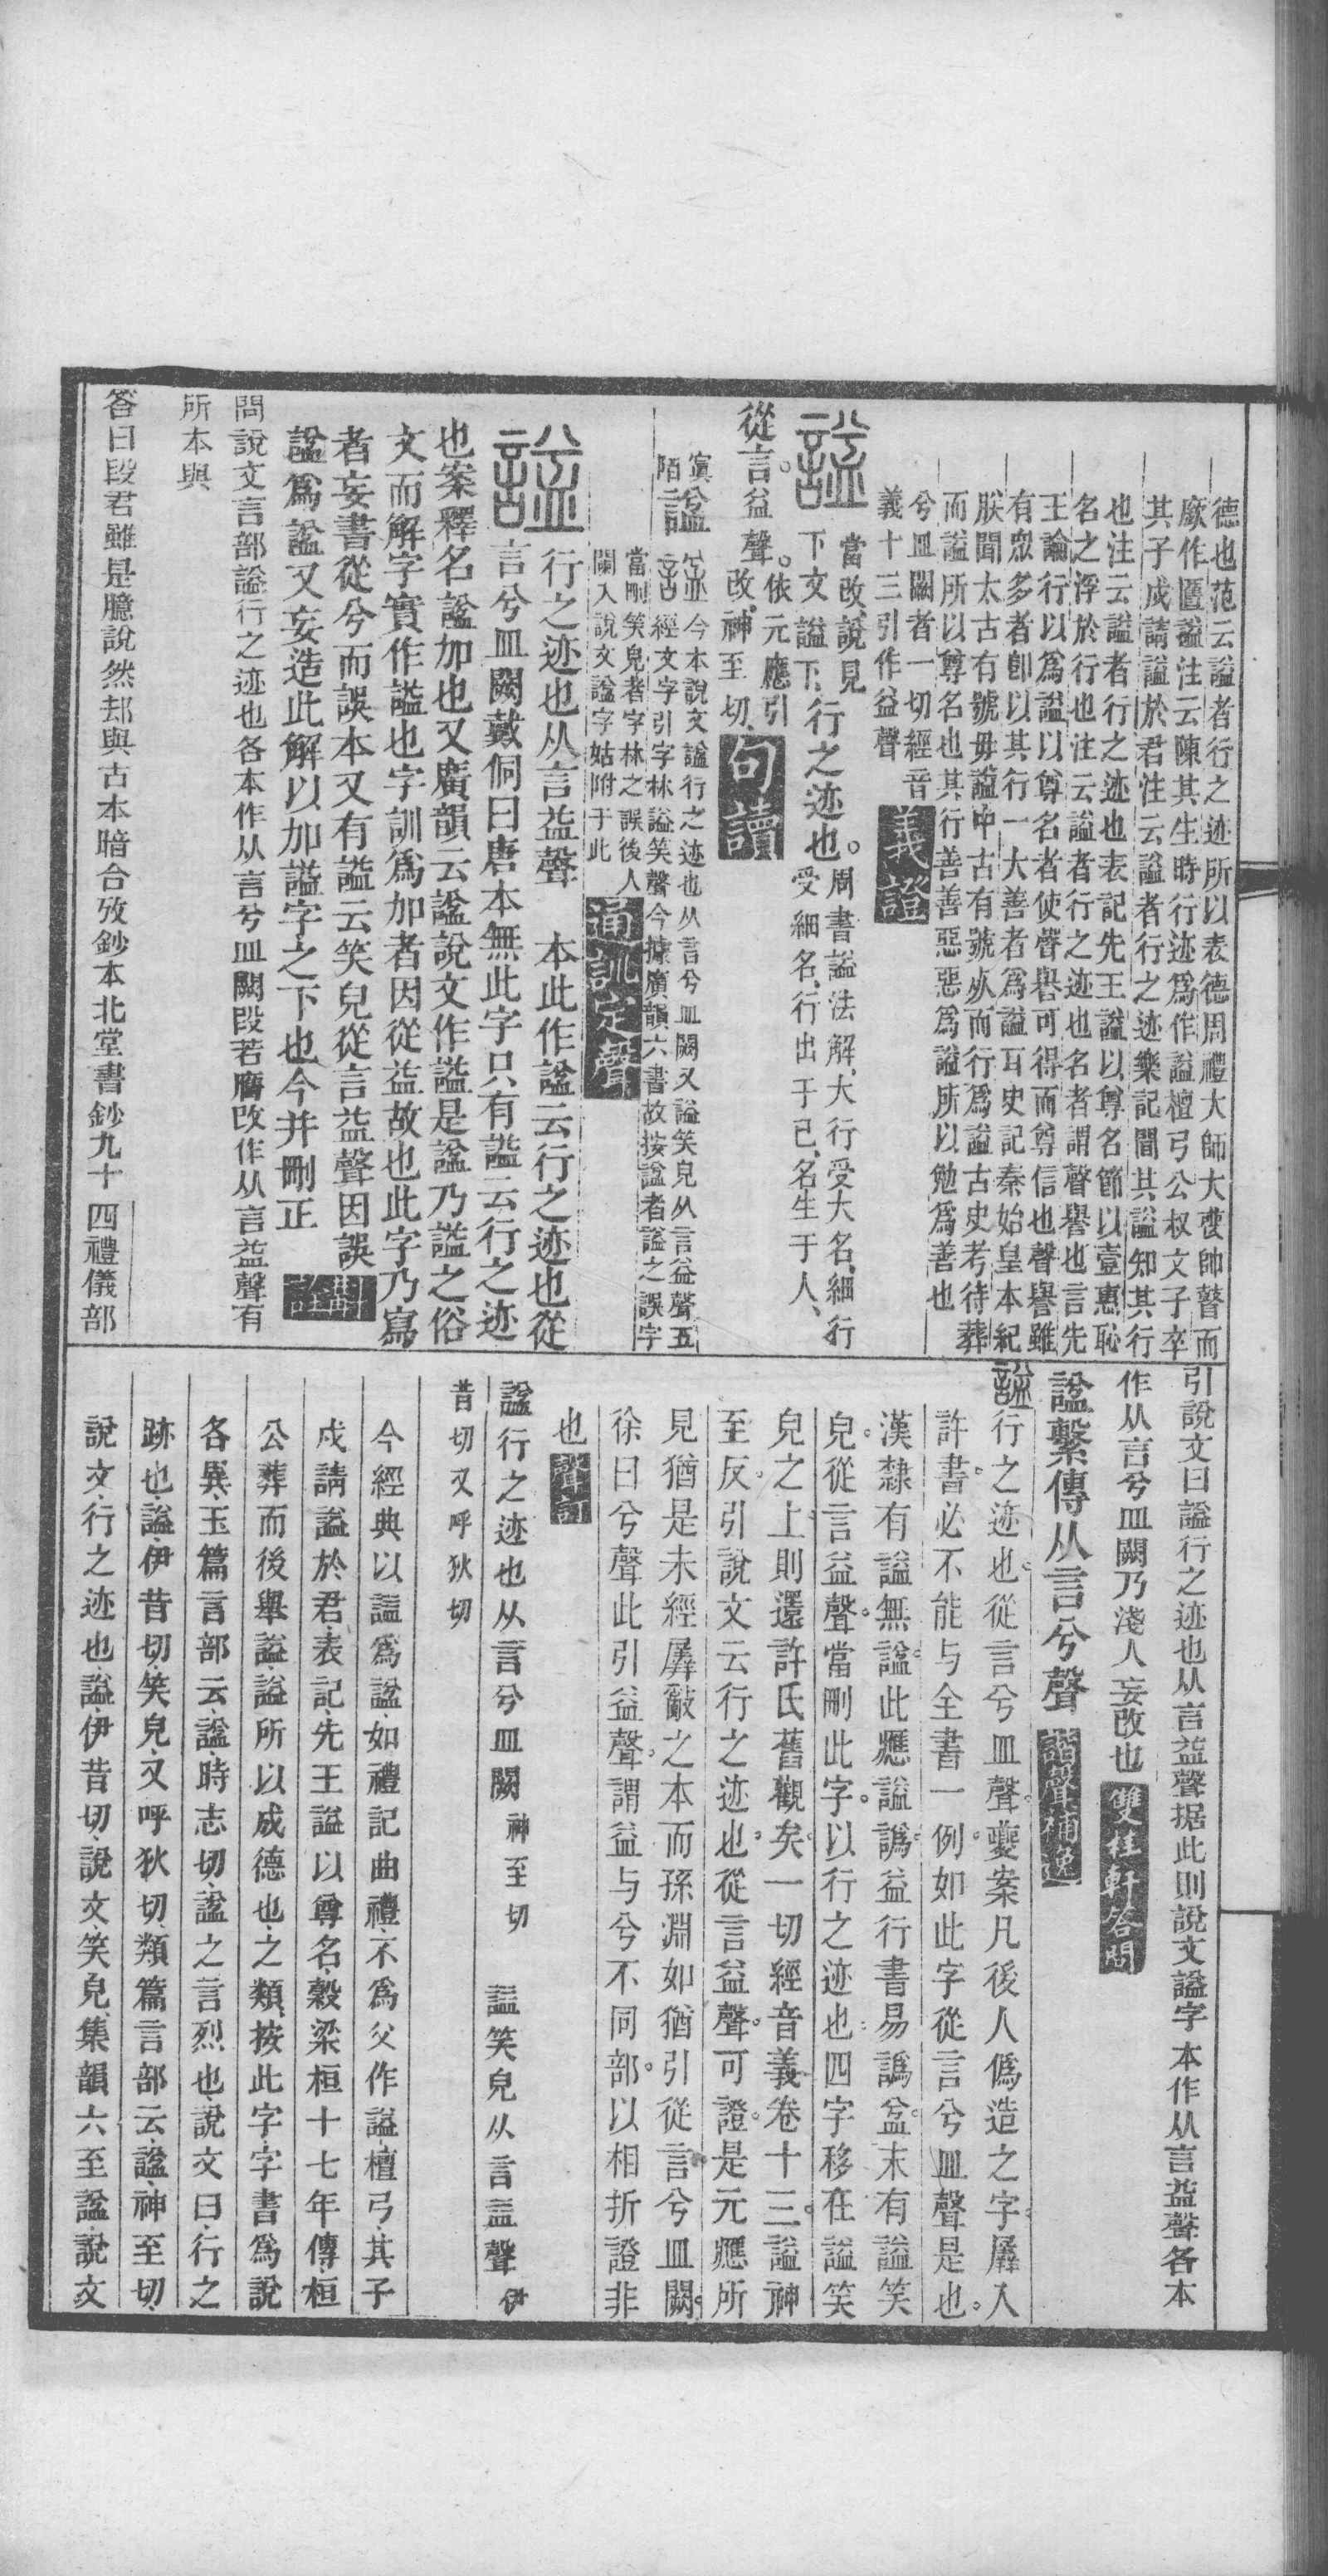 德也范云諡者行之迹所以表德周禮大師大喪帥瞽而
廞作匶諡注云陳其生時行迹爲作諡檀弓公叔文子卒
其子戍請諡於君注云諡者行之迹樂記聞其諡知其行
也注云諡者行之迹也表記先王諡以尊名節以壹惠恥
名之浮於行也注云諡者行之迹也名者謂聲譽也言先
王論行以爲諡以尊名者使聲譽可得而尊信也聲譽雖
有眾多者卽以其行一大善者爲諡耳史記秦始皇本紀
朕聞太古有號毋諡中古有號死而行爲諡古史考待葬
而諡所以尊名也其行善善惡惡爲諡所以勉爲善也
兮皿闕者一切經音
義十三引作益聲
義證
諡
當改說見
下文諡下
行之迹也。
周書諡法解、大行受大名、細行
受細名、行出于己、名生于人、
從言。益聲。
依元應引
改、神至切、
句讀
寘兮
陌
謚
今本說文諡行之迹也从言兮皿闕又謚笑皃从言益聲五
經文字引字林謚笑聲今據廣韻六書故按諡者謚之誤字
當刪笑皃者字林之誤後人
闌入說文諡字姑附于此
通訓定聲
謚
行之迹也从言益聲
本此作諡云行之迹也從
言兮皿闕戴侗曰唐本無此字只有謚云行之迹
也案釋名諡加也又廣韻云諡說文作謚是諡乃謚之俗
文而解字實作謚也字訓爲加者因從益故也此字乃寫
者妄書從兮而誤本又有謚云笑皃從言益聲因誤
謚爲諡又妄造此解以加謚字之下也今并刪正
斠詮
問說文言部諡行之迹也各本作从言兮皿闕段若膺改作从言益聲有
所本與
答曰段君雖是臆說然却與古本暗合攷鈔本北堂書鈔九十四禮儀部
引說文曰謚行之迹也从言益聲据此則說文謚字本作从言益聲各本
作从言兮皿闕乃淺人妄改也
雙桂軒答問
諡繫傳从言兮聲
諧聲補逸
諡
行之迹也。從言兮皿聲。夔案凡後人僞造之字。羼入
許書。必不能与全書一例。如此字從言兮皿聲是也。
漢隸有謚無諡。此應謚譌。益行書易譌盆。末有謚笑
皃。從言益聲。當刪此字。以行之迹也四字。移在謚笑
皃之上。則還許氏舊觀矣。一切經音義卷十三。謚神
至反。引說文云行之迹也。從言益聲。可證。是元應所
見猶是未經羼竄之本。而孫淵如猶引從言兮皿闕。
徐曰兮聲。此引益聲。謂益与兮不同部。以相折證。非
也
聲訂
諡行之迹也从言兮皿闕
神至切
謚笑皃从言益聲
伊
昔切又呼狄切
今經典以謚爲諡、如禮記曲禮、不爲父作謚、檀弓、其子
戍請謚於君、表記、先王謚以尊名、穀梁桓十七年傳、桓
公葬而後舉謚、謚所以成德也、之類、按此字、字書爲說
各異、玉篇言部云、諡、時志切、諡之言烈也、說文曰、行之
跡也、謚、伊昔切、笑皃、又呼狄切、類篇言部云、諡、神至切、
說文、行之迹也、謚、伊昔切、說文、笑皃、集韻六至諡、說文